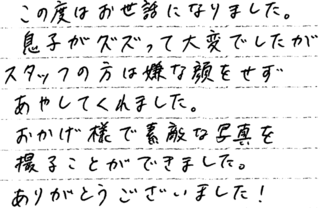 この度はお世話になりました。
息子がグズって大変でしたが
スタッフの方は嫌な顔をせず
あやしてくれました。
おかげ様で素敵な写真を
撮ることができました。
ありがとうございました！